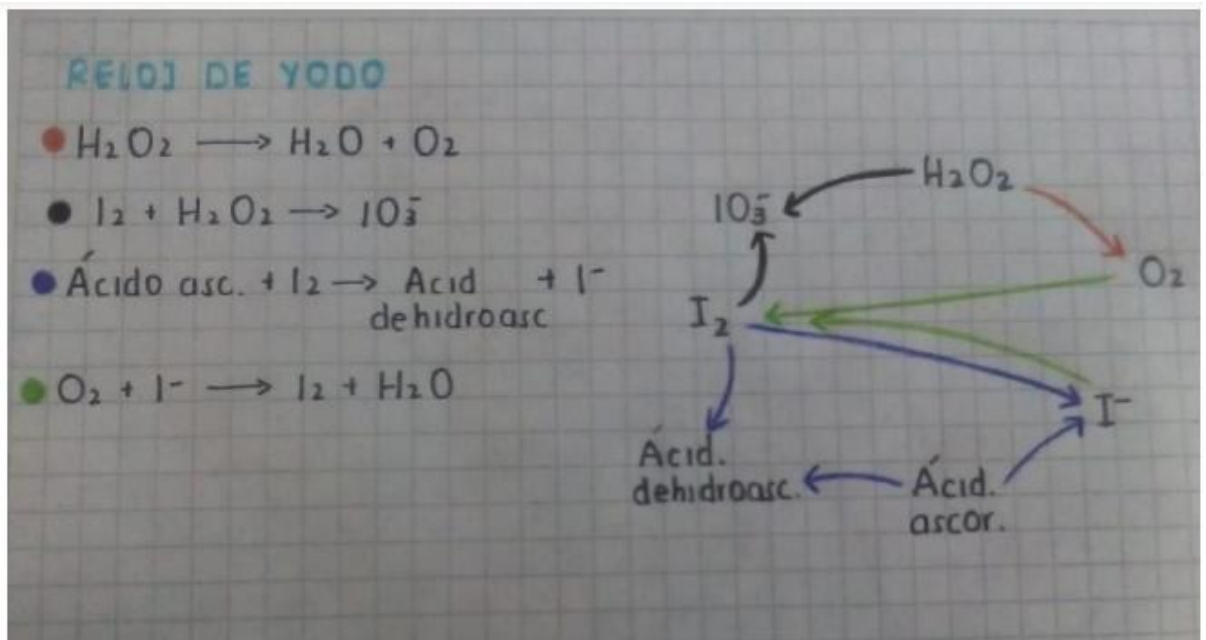 RELOJ DE YODO
H₂O₂ → H₂O + O₂
I₂ + H₂O₂ → IO₃⁻
Ácido asc. + I₂ → Acid + I⁻
dehidroasc
O₂ + I⁻ → I₂ + H₂O
H₂O₂
IO₃⁻
O₂
I₂
I⁻
Ácid.
dehidroasc.
Ácid.
ascor.